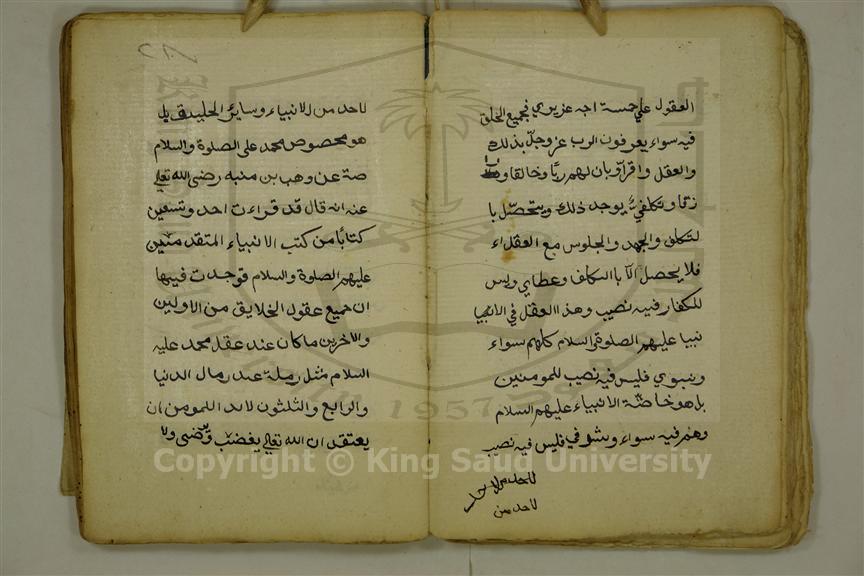 العقول علي خمسة اجه عزيري فجميع الخلق
فيه سواء يعرفون الرب عز وجل بذلك
والعقل واقراؤ بان لهم ربا وخالقا ورا
زقا وتكلفي يوجد ذلك ويتحصل با
لتكلف والجهد والجلوس مع العقلاء
فلا يحصل الا باالتكلف وعطاي وليس
للكفار فيه نصيب وهذا العقل في الانبيا
نبيا عليهم الصلوة السلام كلهم سواء
ونبوي فليس فيه نصيب للمومنين
بل هو خاصة الانبياء عليهم السلام
وهم فيه سواء وشرفي فليس فيه نصيب
لاحد من
لاحد من الانبياء وساير الخليقة بل
هو مخصوص محمد على الصلوة والسلام
صة عن وهب بن منبه رضى الله تعالي
عنه انه قال قد قراءت احد وتسعين
كتابا من كتب الانبياء المتقدمين
عليهم الصلوة والسلام فوجدت فيها
ان جميع عقول الخلايق من الاولين
والاخرين ما كان عند عقل محمد عليه
السلام مثل رملة عند رمال الدنيا
والرابع والثلثون لابد للمومن ان
يعتقد ان الله تعالي يغضب ويرضى ولا
1957
Copyright © King Saud University